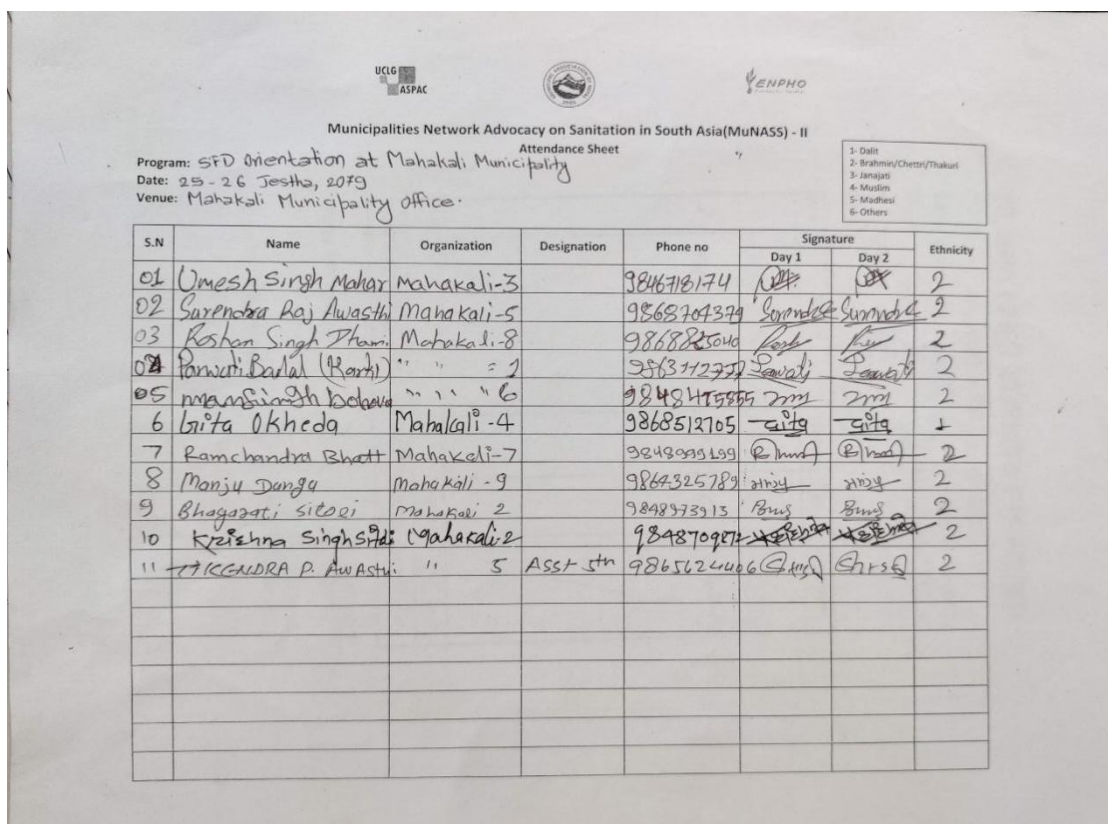 UCLG
ASPAC
ENPHO
Municipalities Network Advocacy on Sanitation in South Asia(MuNASS) - II
Attendance Sheet
Program: SFD Orientation at Mahakali Municipality
Date: 25-26 Jestha, 2079
Venue: Mahakali Municipality Office.
1- Dalit
2- Brahmin/Chettri/Thakuri
3- Janajati
4- Muslim
5- Madhesi
6- Others
S.N Name Organization Designation Phone no Signature Ethnicity
Day 1 Day 2
01 Umesh Singh Mahar Mahakali-3 9846718174 2
02 Surendra Raj Awasthi Mahakali-5 9868704379 Surendra Surendra 2
03 Roshan Singh Dhami Mahakali-8 2
04 Parwati Badal (Karki) " " = 1 Parwati Parwati 2
05 mansingh bohara " " " 6 2
6 Gita Okheda Mahakali-4 9868512705 गीता गीता 1
7 Ramchandra Bhatt Mahakali-7 9848999199 2
8 Manju Dunga Mahakali-9 9864325789 मन्जु मन्जु 2
9 Bhagarati Mahakali 2 9848973913 2
10 Krishna Singh Mahakali-2 2
11 P. AWASTHI " 5 Asst 9865624406 2